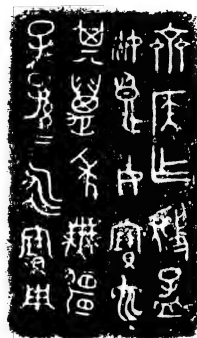 齊侯乍虢孟
姬良母寶它
其萬年無疆
子孫＝永寶用